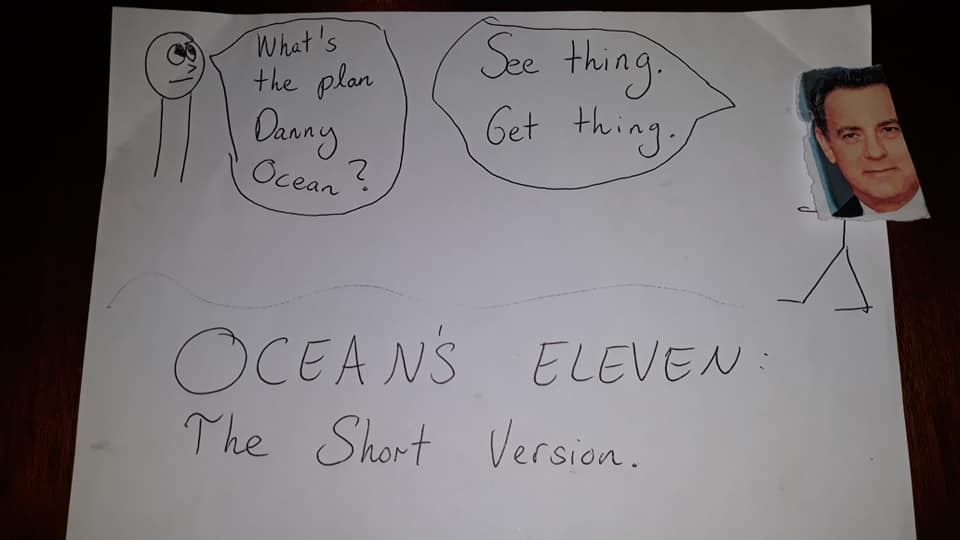 What's
the plan
Danny
Ocean?
See thing.
Get thing.
OCEAN'S ELEVEN:
The Short Version.